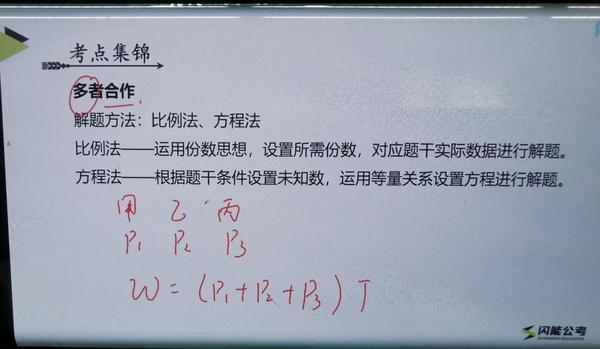 考点集锦
多者合作
解题方法：比例法、方程法
比例法——运用份数思想，设置所需份数，对应题干实际数据进行解题。
方程法——根据题干条件设置未知数，运用等量关系设置方程进行解题。
甲 乙 丙
P₁ P₂ P₃
W = (P₁+P₂+P₃) T
闪能公考